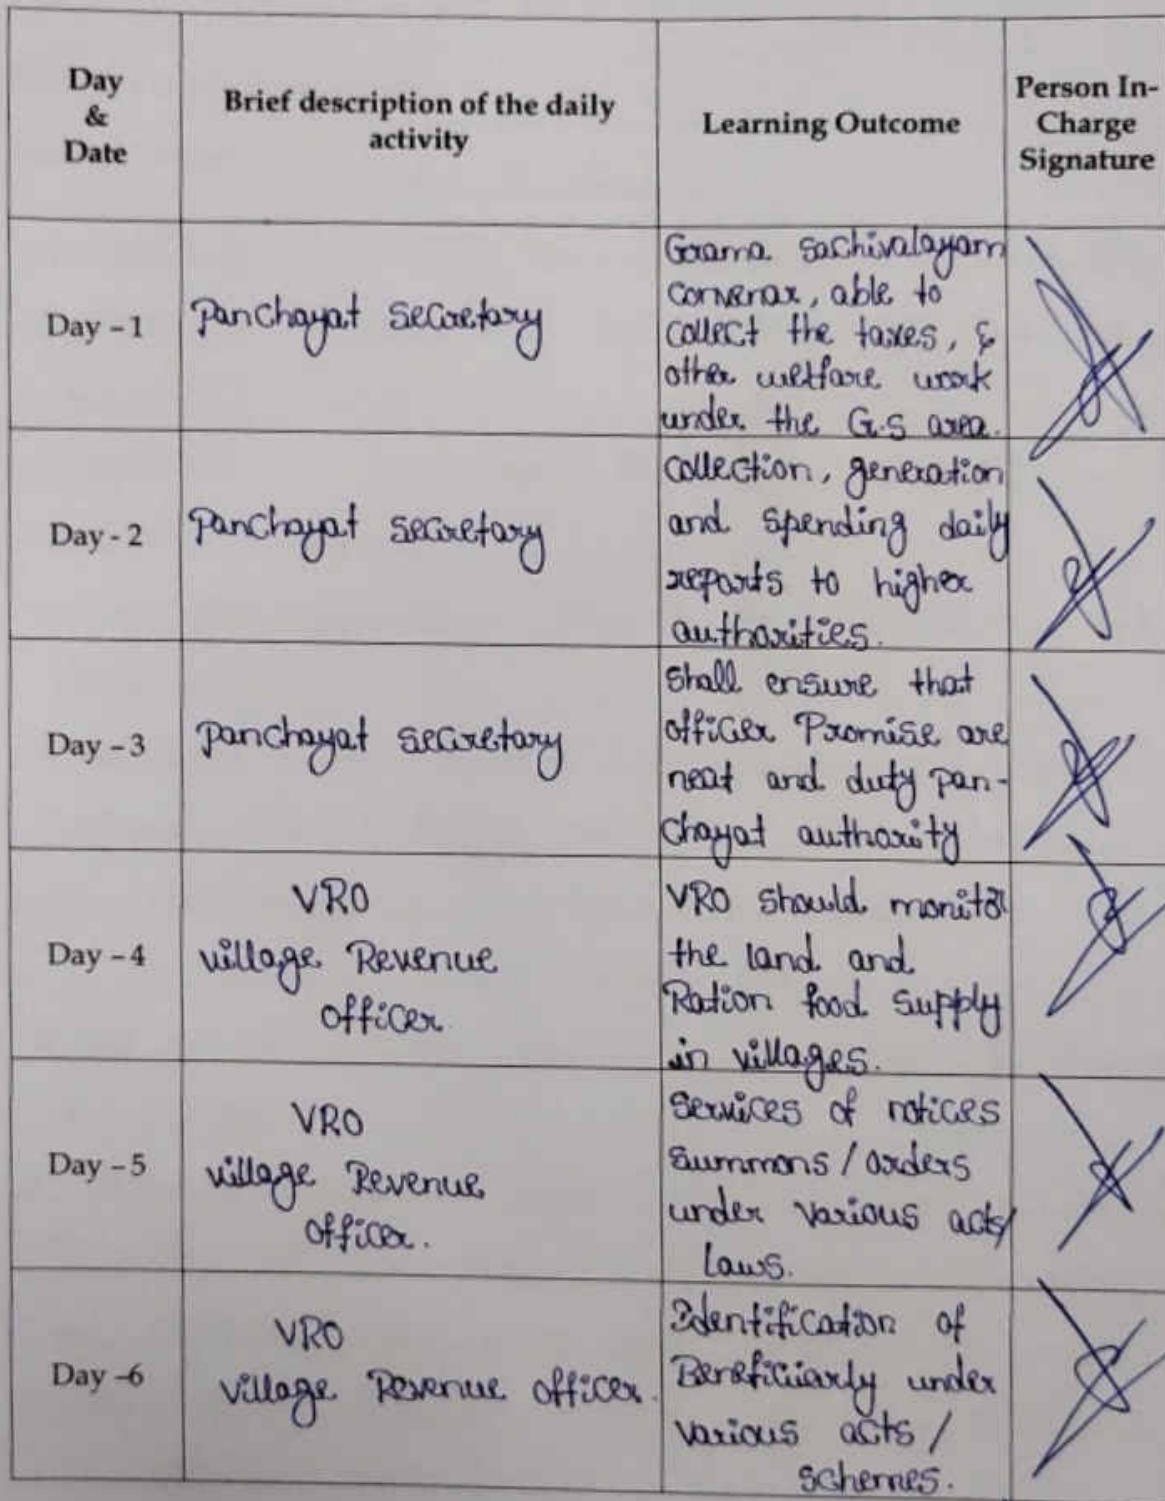 Day
&
Date
Brief description of the daily
activity
Learning Outcome
Person In-
Charge
Signature
Day - 1
Panchayat secretary
Grama sachivalayam
convenar, able to
collect the taxes, &
other welfare work
under the G.S area.
Day - 2
Panchayat secretary
collection, generation
and spending daily
reports to higher
authorities.
Day - 3
panchayat secretary
shall ensure that
officer Promise are
neat and duty pan-
chayat authority
Day - 4
VRO
village Revenue
officer
VRO should monitor
the land and
Ration food supply
in villages.
Day - 5
VRO
village Revenue
officer.
Services of notices
Summons / orders
under various acts/
laws.
Day -6
VRO
village Revenue officer.
Identification of
Beneficiarly under
various acts /
schemes.